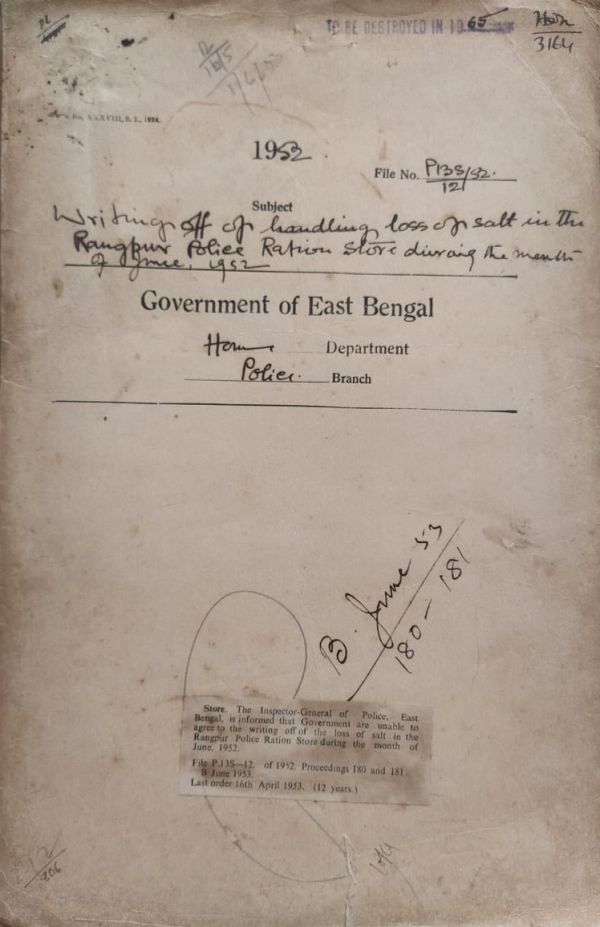 TO BE DESTROYED IN 1965
3164
1952
File No. P13S/52.
12
Subject
Writing off of handling loss of salt in the
Rangpur Police Ration Store during the month
of June, 1952
Government of East Bengal
Home Department
Police. Branch
B. June 53
180 - 181
Store. The Inspector-General of Police, East
Bengal, is informed that Government are unable to
agree to the writing off of the loss of salt in the
Rangpur Police Ration Store during the month of
June, 1952.
File P.13S—12 of 1952. Proceedings 180 and 181
B June 1953.
Last order 16th April 1953. (12 years.)